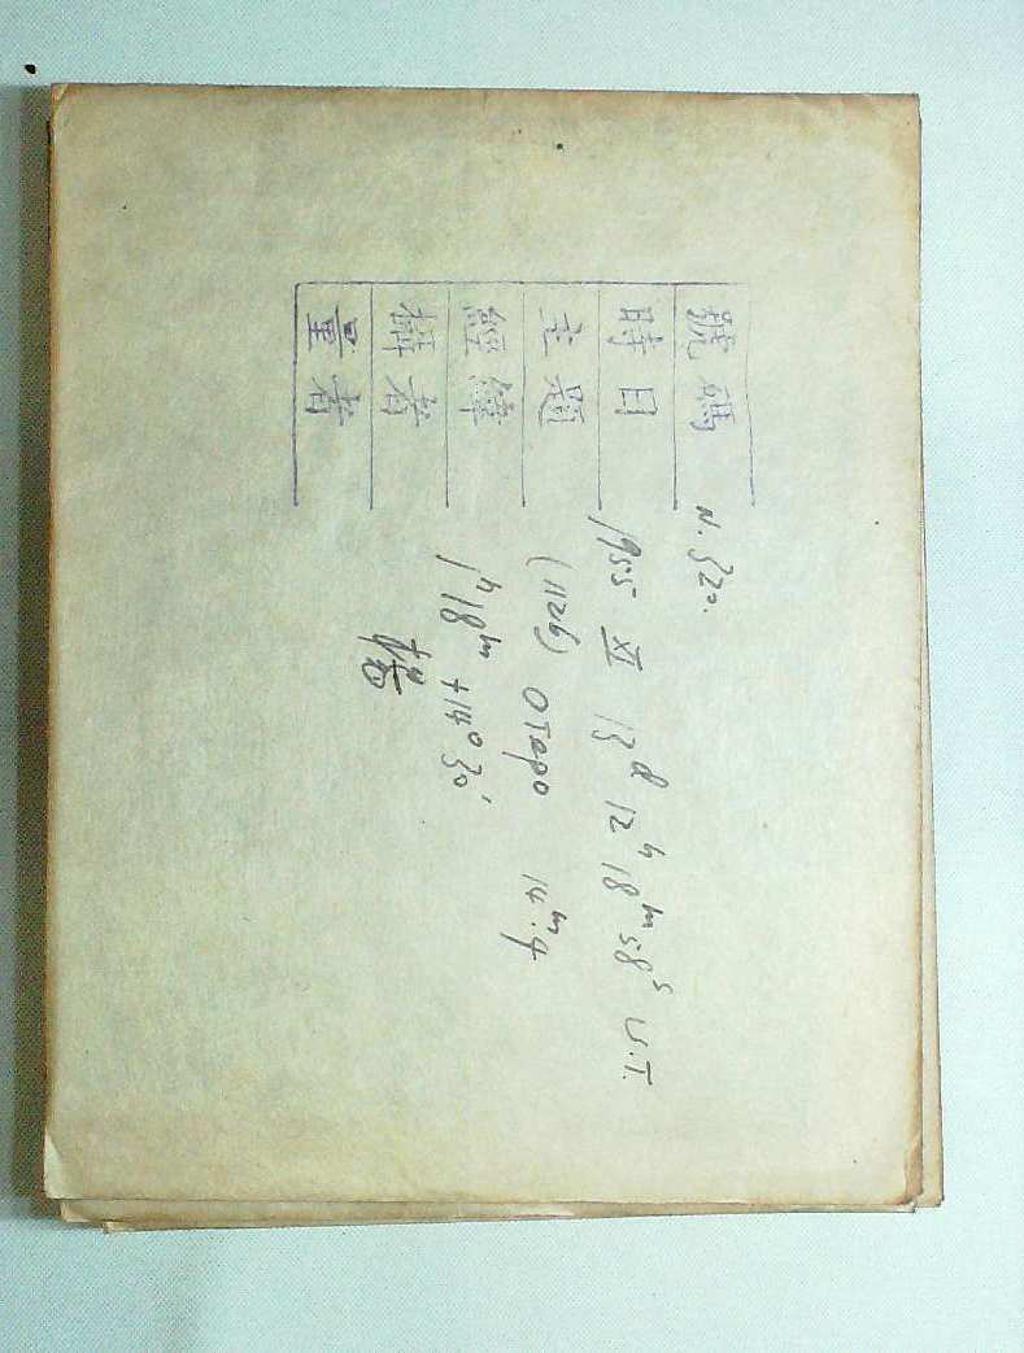 號碼 N. 320.
時日 1955 XI 13ᵈ 12ʰ 18ᵐ 58ˢ U.T.
主題 (1126) Отеро 14ᵐ.9
經緯 1ʰ18ᵐ +14°30′
攝者
量者